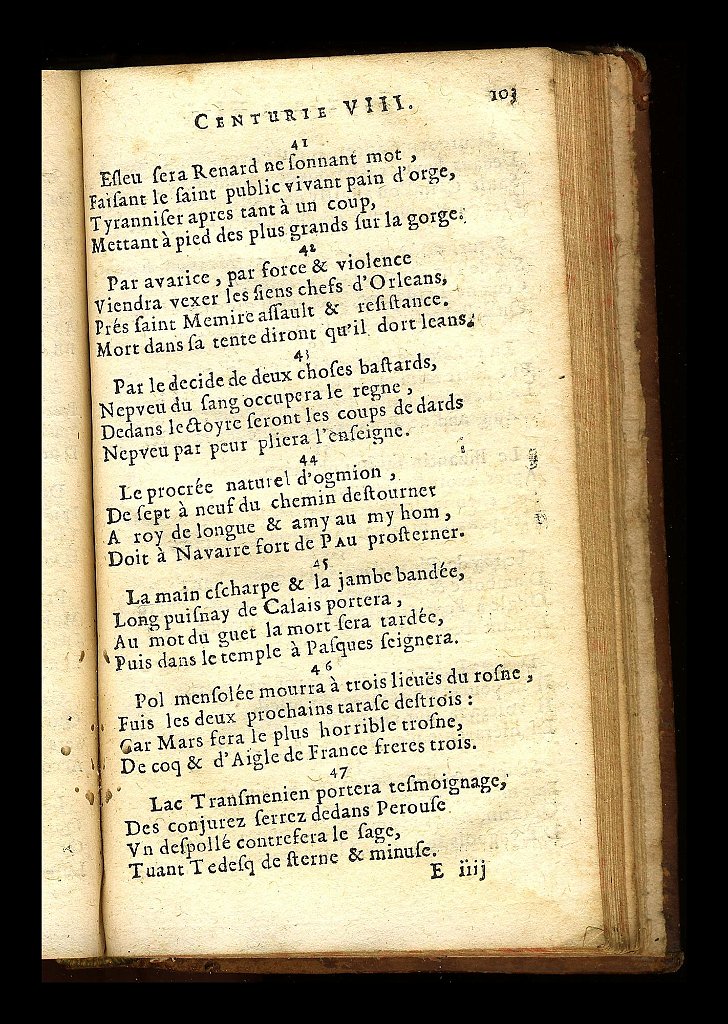 CENTURIE VIII. 103
41
Esleu sera Renard ne sonnant mot,
Faisant le saint public vivant pain d'orge,
Tyranniser apres tant à un coup,
Mettant à pied des plus grands sur la gorge.
42
Par avarice, par force & violence
Viendra vexer les siens chefs d'Orleans,
Prés saint Memire assault & resistance.
Mort dans sa tente diront qu'il dort leans.
43
Par le decide de deux choses bastards,
Nepveu du sang occupera le regne,
Dedans lectoyre seront les coups de dards
Nepveu par peur pliera l'enseigne.
44
Le procrée naturel d'ogmion,
De sept à neuf du chemin destourner
A roy de longue & amy au my hom,
Doit à Navarre fort de PAU prosterner.
45
La main escharpe & la jambe bandée,
Long puisnay de Calais portera,
Au mot du guet la mort sera tardée,
Puis dans le temple à Pasques seignera.
46
Pol mensolée mourra à trois lieuës du rosne,
Fuis les deux prochains tarasc destrois:
Car Mars fera le plus horrible trosne,
De coq & d'Aigle de France freres trois.
47
Lac Transmenien portera tesmoignage,
Des conjurez serrez dedans Perouse
Vn despollé contrefera le sage,
Tuant Tedesq de sterne & minuse.
E iiij